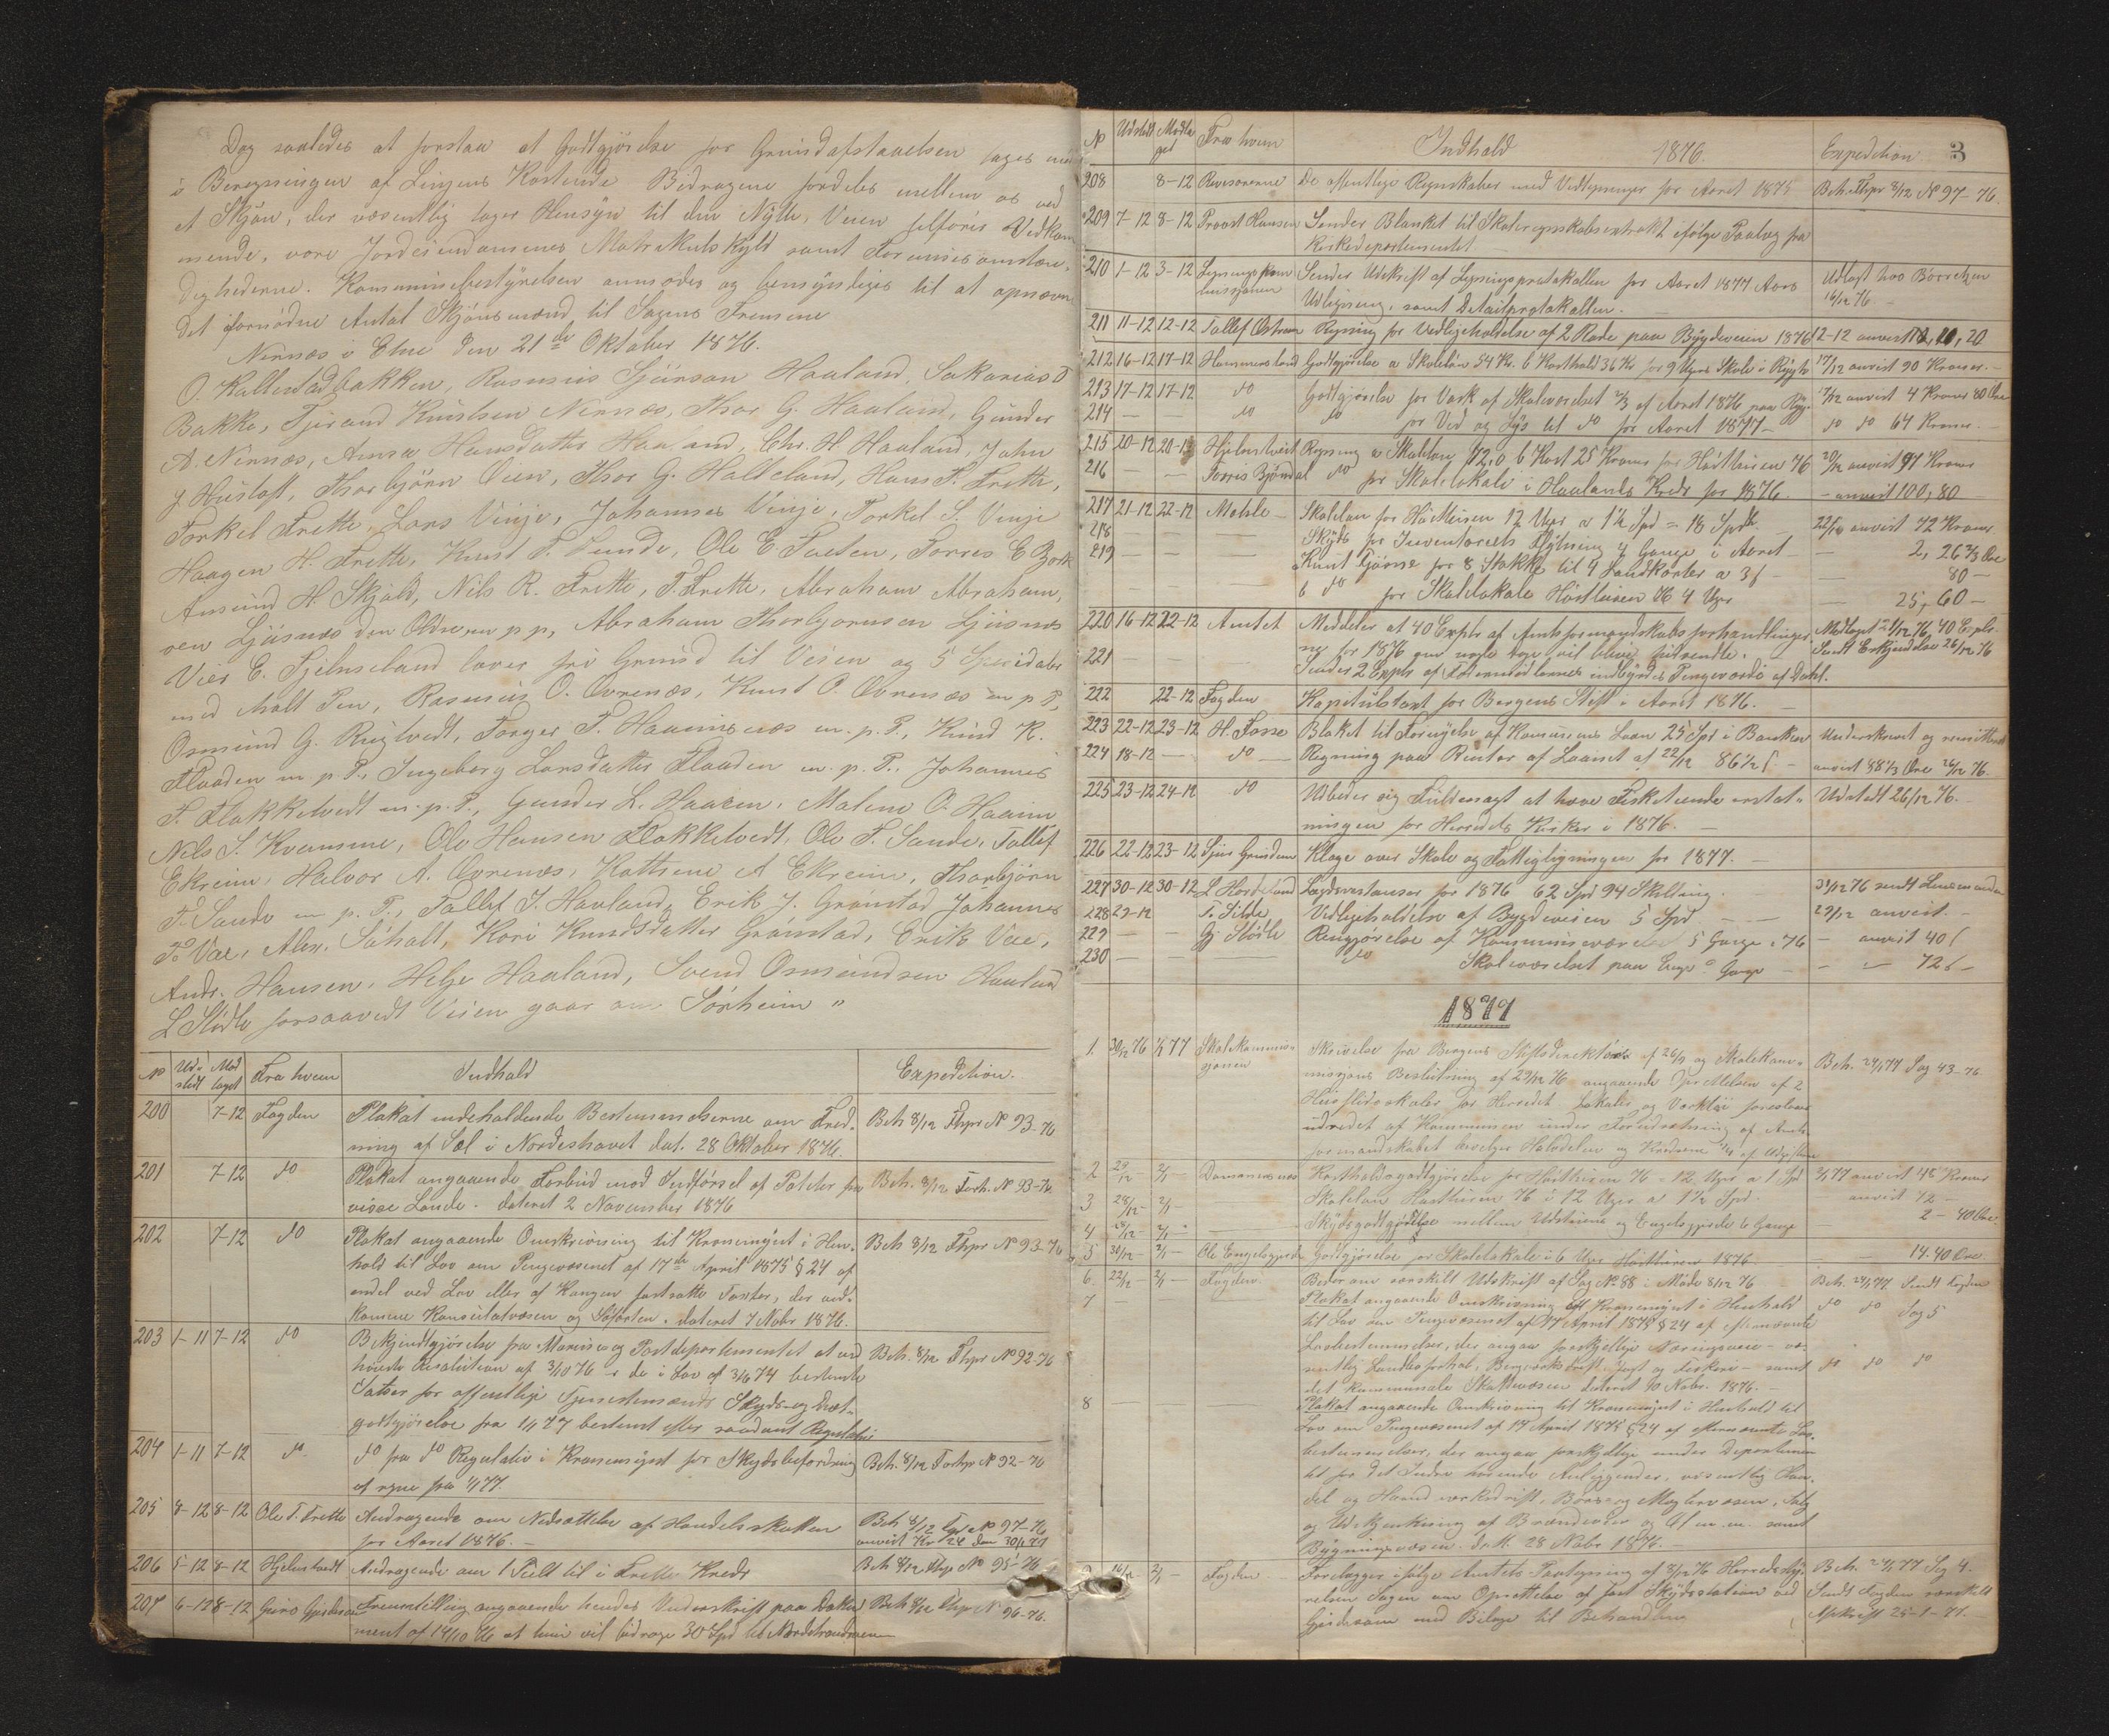 Dog saaledes at forstaa at Godtgjörelse for Grundafstaaelsen tages med
i Beregningen af Linjens Kostende Bidragene fordeles mellem os ved
et Skjön, der væsentlig tager Hensyn til den Nytte, Veien tilförer Vedkom
mende, vore Jordeiendommenes Matrikulskyld samt Formuesomstæn-
dighederne. Kommunebestyrelsen anmodes og bemyndiges til at opnævne
det fornödne Antal Skjönsmænd til Sagens Fremme
Nernæs i Etne den 21de Oktober 1876.
O. Kallestadbakken, Rasmus Sjursen Haaland, Sakarias T
Bakke, Tjerand Knutsen Nernæs, Thor G. Haaland, Gunder
A. Nernæs, Anna Hansdatter Haaland, Chr. H. Haaland, John
J Hustoft, Thorbjörn Vien, Thor G. Halleland, Hans T. Frette,
Torkel Frette, Lars Vinje, Johannes Vinje, Torkel S. Vinje
Haagen H. Frette, Knut T. Lunde, Ole E Tveten, Torres E Bork
Amund H. Skjold, Nils R. Frette, T. Frette, Abraham Abraham,
sen Ljusnæs den Eldre m p p, Abraham Thorbjörnsen Ljusnæs
Vier E. Fjelmseland lover fri Grund til Veien og 5 Speciedaler
med holdt Pen, Rasmus O. Ovrenæs, Knut O. Ovrenæs m p P,
Osmund G. Rygtvedt, Torger T. Haaimsnæs m. p. P., Knud K.
Flaaden m p P., Ingeborg Larsdatter Flaaden m. p. P., Johannes
T. Flakketvedt m. p. P., Gunder L. Haaim, Malene O. Haaim
Nils S. Kvamme, Ole Hansen Flakketvedt, Ole T. Sande, Tallef
Ekreim, Halvor A. Ovrenæs, Kathrine A Ekreim, Thorbjörn
T. Sande m p. P., Tallef T. Haaland, Erik J. Grönstad Johannes
P. Vae, Alex. Söhalt, Kari Knudsdatter Grönstad, Erik Vae,
Andr. Hansen, Helje Haaland, Svend Osmundsen Haaland
L Stödle forsaavidt Veien gaar om Sörheim "
No Ud-stedt Mod taget Fra hvem Indhold Expedition.
200 7-12 Fogden Plakat indeholdende Bestemmelserne om Fred- Beh 8/12 Fhpr No 93-76
ning af Sæl i Nordishavet dat. 28 Oktober 1876.
201 7-12 do Plakat angaaende Forbud mod Indförsel af Poteter fra Beh. 8/12 Forh. No 93-76
visse Lande. dateret 2 November 1876
202 7-12 do Plakat angaaende Omskrivning til Kronemynt i Hen- Beh 8/12 Fhpr No 93-76
hold til Lov om Pengevæsenet af 17de April 1875 § 24 af
endel ved Lov eller af Kongen fastsatte Taxter, der ved-
komme Konsulatvæsen og Söfarten. dateret 7 Nobr 1876.
203 1-11 7-12 do Bekjendtgjörelse fra Marine og Postdepartementet at ved Beh. 8/12 Fhpr No 92-76
höieste Resolution af 3/10 76 er de i Lov af 3/6 74 bestemte
Satser for offentlige Tjenestemænds Skyds- og Diæt-
godtgjörelse fra 1/1 77 bestemt efter saadant Regulativ
204 1-11 7-12 do do fra do Regulativ i Kronemynt for Skydsbefordring Beh. 8/12 Forhpr No 92-76
at regne fra 1/1 77.
205 8-12 8-12 Ole T. Frette Andragende om Nedsættelse af Handelsskatten Beh 8/12 Fpr No 97-76
for Aaret 1876. anvist Kr 24 den 30/1 77
206 5-12 8-12 Hjelmtvedt Andragende om 1 Tælt til i Frette Kreds Beh 8/12 Fhp No 95-76
207 6-12 8-12 Guro Gjerdesen Fremstilling angaaende hendes Underskrift paa Doku- Beh 8/12 Fhp N 96-76.
ment af 14/10 76 at hun vil bidrage 30 Spd til Nordstrandveien
No Udstedt Modta get Fra hvem Indhold 1876. Expedition 3
208 8-12 Revisorerne De offentlige Regnskaber med Vedtegninger for Aaret 1875 Beh. Fhpr 8/12 No 97-76.
209 7-12 8-12 Provst Hansen Sender Blanket til Skoleregnskabsextrakt ifölge Paalæg fra
Kirkedepartementet
210 1-12 3-12 Ligningskom Sender Udskrift af Ligningsprotokollen for Aaret 1877 Aars Udlagt hos Börretzen
missjonen Udligning, samt Detailprotokollen. 16/12 76.
211 11-12 12-12 Tallef Östrem Regning for Vedligeholdelse af 2 Rode paa Bygdeveien 1876 12-12 anvist 20
212 16-12 17-12 Hammersland Godtgjörelse a Skolelön 54 Kr. b Kosthold 36 Kr for 9 Ugers Skole i Rygh 17/12 anvist 90 Kroner.
213 17-12 17-12 do Godtgjörelse for Vask af Skoleværelset 2/3 af Aaret 1876 paa Ryg. 17/12 anvist 4 Kroner 80 Öre
214 — do do for Ved og Lys til do for Aaret 1877 — do do 64 Kroner
215 20-12 20-12 Hjelmtvedt Regning a Skolelön 72,0 b Kost 25 Kroner for Hösthusen 76 20/12 anvist 97 Kroner
216 — — Torris Bjöndal do for Skolelokale i Haalands Kreds for 1876. — anvist 100,80
217 21-12 22-12 Mæhle Skolelön for Hösthusen 12 Uger a 1 1/2 Spd = 18 Spd. 22/12 anvist 72 Kroner
218 — — — Skyds for Inventariets Flytning 4 Gange i Aaret — 2, 26 2/3 Öre
219 — — Knut Fjösne for 8 Stokke til 9 Landkarter a 3 ſ — 80 —
— b do for Skolelokale Hösthusen 76 4 Uger — 25, 60 —
220 16-12 22-12 Amtet Meddeler at 40 Exptr af Amtsformandskabsforhandlinger- Modtaget 21/12 76 40 Expl.
ne for 1876 med vil blive udsendte. Sendt Erkjendelse 26/12 76
221 — — Sender 2 Exptr af indbyrdes Pengeværdi af Dahl.
222 22-12 Fogden Kapitulstaxt for Bergens Stift i Aaret 1876.
223 22-12 23-12 H. Fosse Blaket til Fornyelse af Kommunens Laan 25 Spd i Banken Underskrevet og remitteret
224 18-12 — do Regning paa Renter af Laanet af 22/12 86 1/2 ſ — anvist 88 1/3 Öre 26/12 76.
225 23-12 24-12 do Udbeder sig Fuldmagt at hæve Fisketiende erstat- Udstedt 26/12 76.
ningen for Herredets Kirker i 1876.
226 22-12 23-12 Sjur Grindem Klage over Skole og Fattigligningen for 1877.
227 30-12 30-12 L Hordeland Lægdsrestanser for 1876 62 Spd 94 Skilling 31/12 76 sendt Lensmanden
228 29-12 T. Silde Vedligeholdelse af Bygdeveien 5 Spd — — 29/12 anvist. —
229 — — Gj. Stödle Rengjörelse af Kommuneværelset 5 Gange i 76 — anvist 40 ſ
230 — — — do Skoleværelset paa Enge Gange — — — 72 ſ —
1877
1. 30/12 76 1/1 77 Skolekommis- Skrivelse fra Bergens Stiftsdirektion af 26/9 og Skolekom- Beh. 24/1 77 Sag 43-76
sjonen missjons Beslutning af 29/12 76 angaaende Oprettelsen af 2
Husflidsskoler for Herredet Lokaler og Verktöi foreslaaes
udredet af Kommunen under Forudsætning af Amts-
formandskabet bevilger Halvdelen og Kredsene 1/4 af Udgifterne
2 29/12 2/1 — Dommersnæs Kostholdsgodtgjörelse for Hösthusen 76 = 12 Uger a 1 Spd 2/1 77 anvist 48 Kroner
3 28/12 — 2/1 — Skolelön Hösthusen 76 i 12 Uger a 1 1/2 Spd. anvist 72 —
4 28/12 — 2/1 — Skydsgodtgjörelse mellem Östrheim og Engelsgjerde 6 Gange 2 — 40 Öre.
5 30/12 — 2/1 — Ole Engelsgjerde Godtgjörelse for Skolelokale i 6 Uger Hösthusen 1876 — 14.40 Öre.
6. 22/12 — 2/1 — Fogden. Beder om særskilt Udskrift af Sag No 88 i Möde 8/12 76 Beh. 24/1 77 Sendt Fogden
7 — Plakat angaaende Omskrivning til Kronemynt i Henhold do do Sag 5
til Lov om Pengevæsenet af 17 April 1875 § 24 af efternævnte
Lovbestemmelser, der angaa forskjellige Næringsveie — væ-
sentlig Landhusholdn. Bergværksdrift, Jagt og Fiskeri — samt do do do
det kommunale Skattevæsen dateret 10 Nobr. 1876. —
8 — Plakat angaaende Omskrivning til Kronemynt i Henhold til
Lov om Pengevæsenet af 17 April 1875 § 24 af efternævnte Lov-
bestemmelser, der angaa forskjellige under Departemen
tet for det Indre hörende Anliggender, væsentlig Han-
del og Haandværksdrift, Börs- og Mæglervæsen, Salg
og Udskjenkning af Brændevin og Öl m. m. samt
Bygningsvæsen. dat. 28 Nobr 1876. —
9 16/12 — 2/1 — Fogden Forelægger ifölge Amtets Paategning af 3/12 76 Herredssty- Beh. 24/1 77 Sag 4.
relsen Sagen om Oprettelse af fast Skydsstation ved Sendt Fogden særskilt
Gjerdesum med Bilage til Behandling Afskrift 25-1-77.